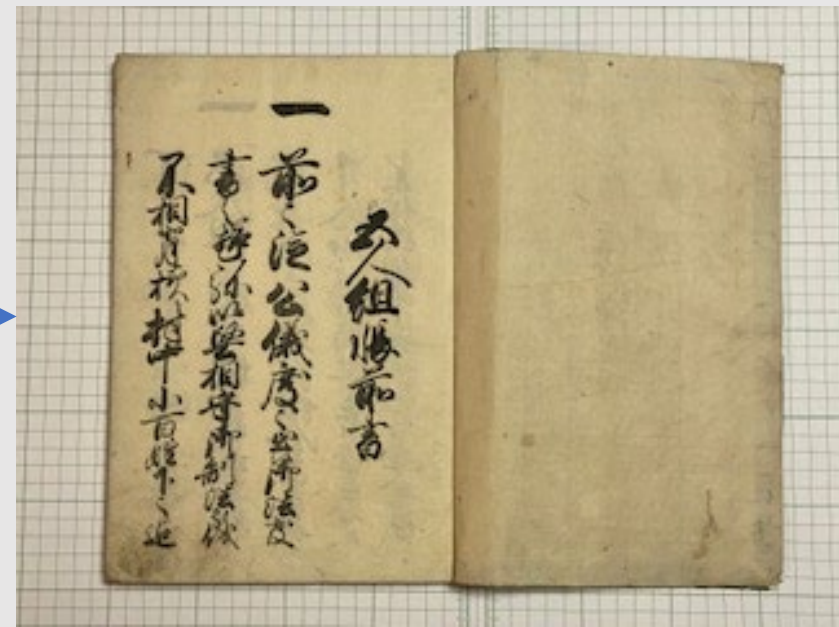 五人組帳前書
一 前々従 公儀度々出御法度
書之趣弥以堅相守御制法儀
不相背様村中小百姓下々迄